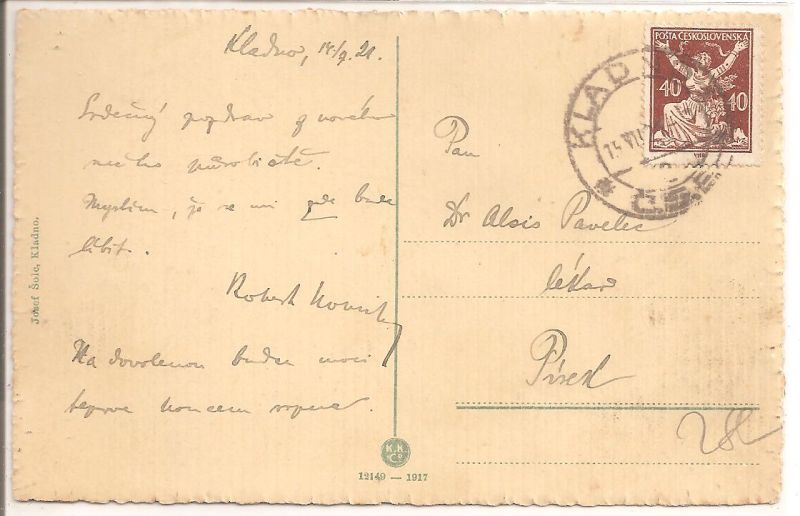 Kladno, 14/7. 21.
Srdečný pozdrav z nového
mého působiště.
Myslím, že se mi zde bude
líbit.
Robert
Na dovolenou budu moci
teprve koncem srpna.
Josef Šole, Kladno.
K.K.
Co
12149 — 1917
POŠTA ČESKOSLOVENSKÁ
40 40
KLADNO
15 VII
Č.S.R.
Pan
Dr Alois Pavelec
lékař
Písek